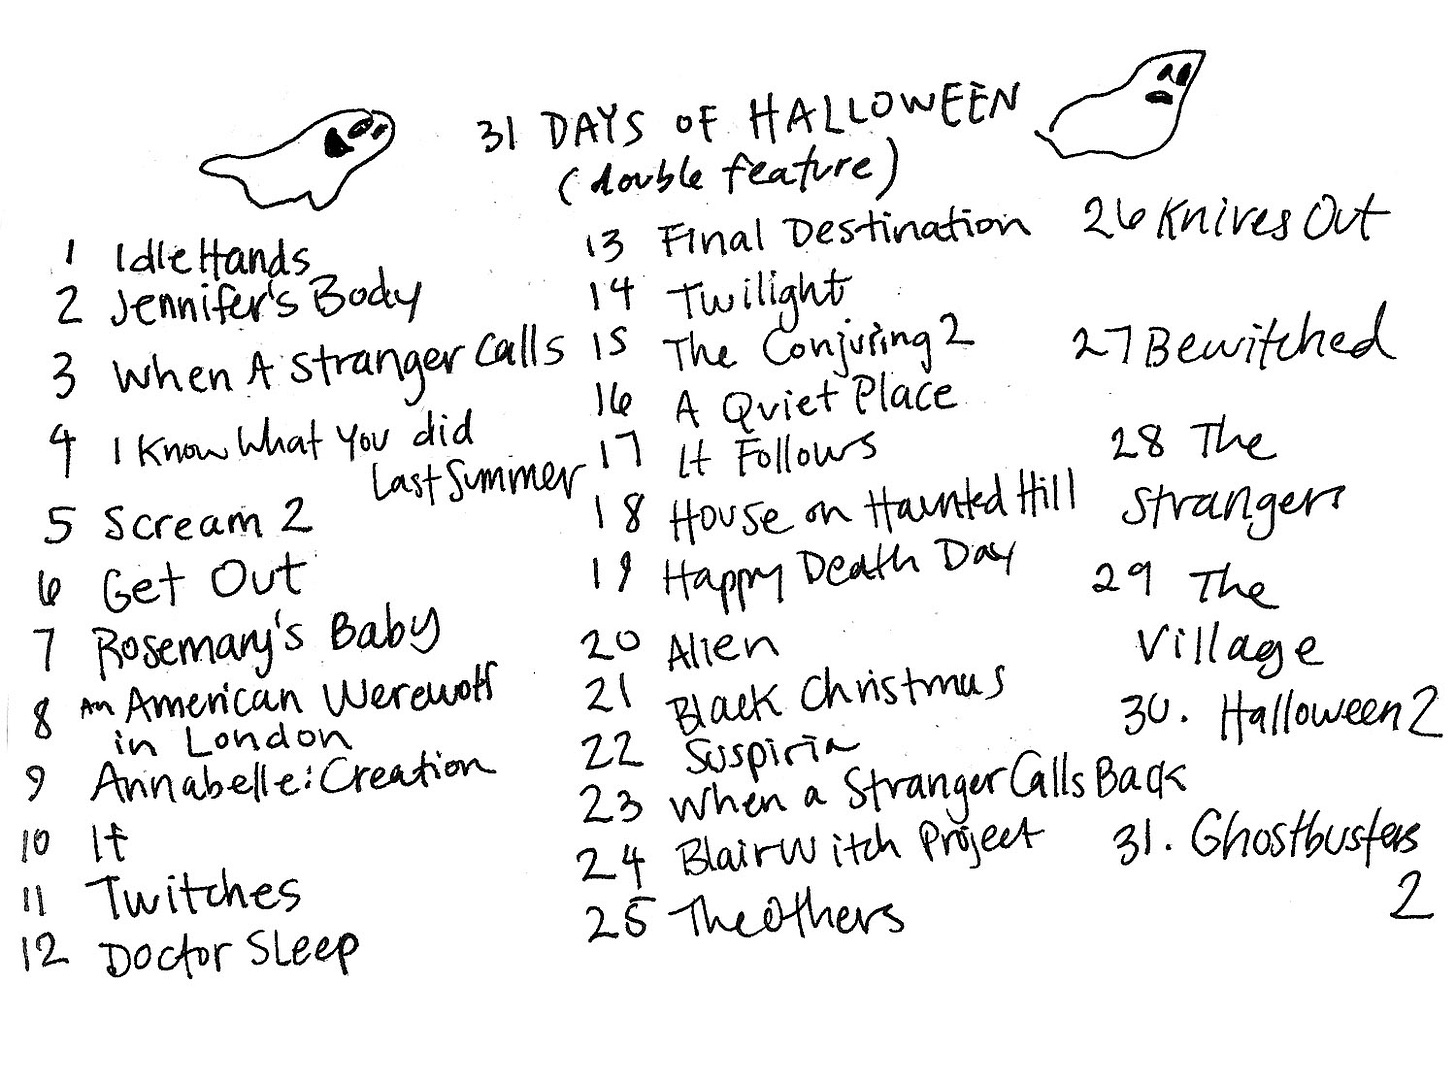 31 DAYS OF HALLOWEEN
(double feature)
1 Idle Hands
2 Jennifer's Body
3 When A Stranger Calls
4 I Know What You did
Last Summer
5 Scream 2
6 Get Out
7 Rosemary's Baby
8 An American Werewolf
in London
9 Annabelle: Creation
10 It
11 Twitches
12 Doctor Sleep
13 Final Destination
14 Twilight
15 The Conjuring 2
16 A Quiet Place
17 It Follows
18 House on Haunted Hill
19 Happy Death Day
20 Alien
21 Black Christmas
22 Suspiria
23 When a Stranger Calls Back
24 Blair Witch Project
25 The Others
26 Knives Out
27 Bewitched
28 The
Strangers
29 The
Village
30. Halloween 2
31. Ghostbusters
2